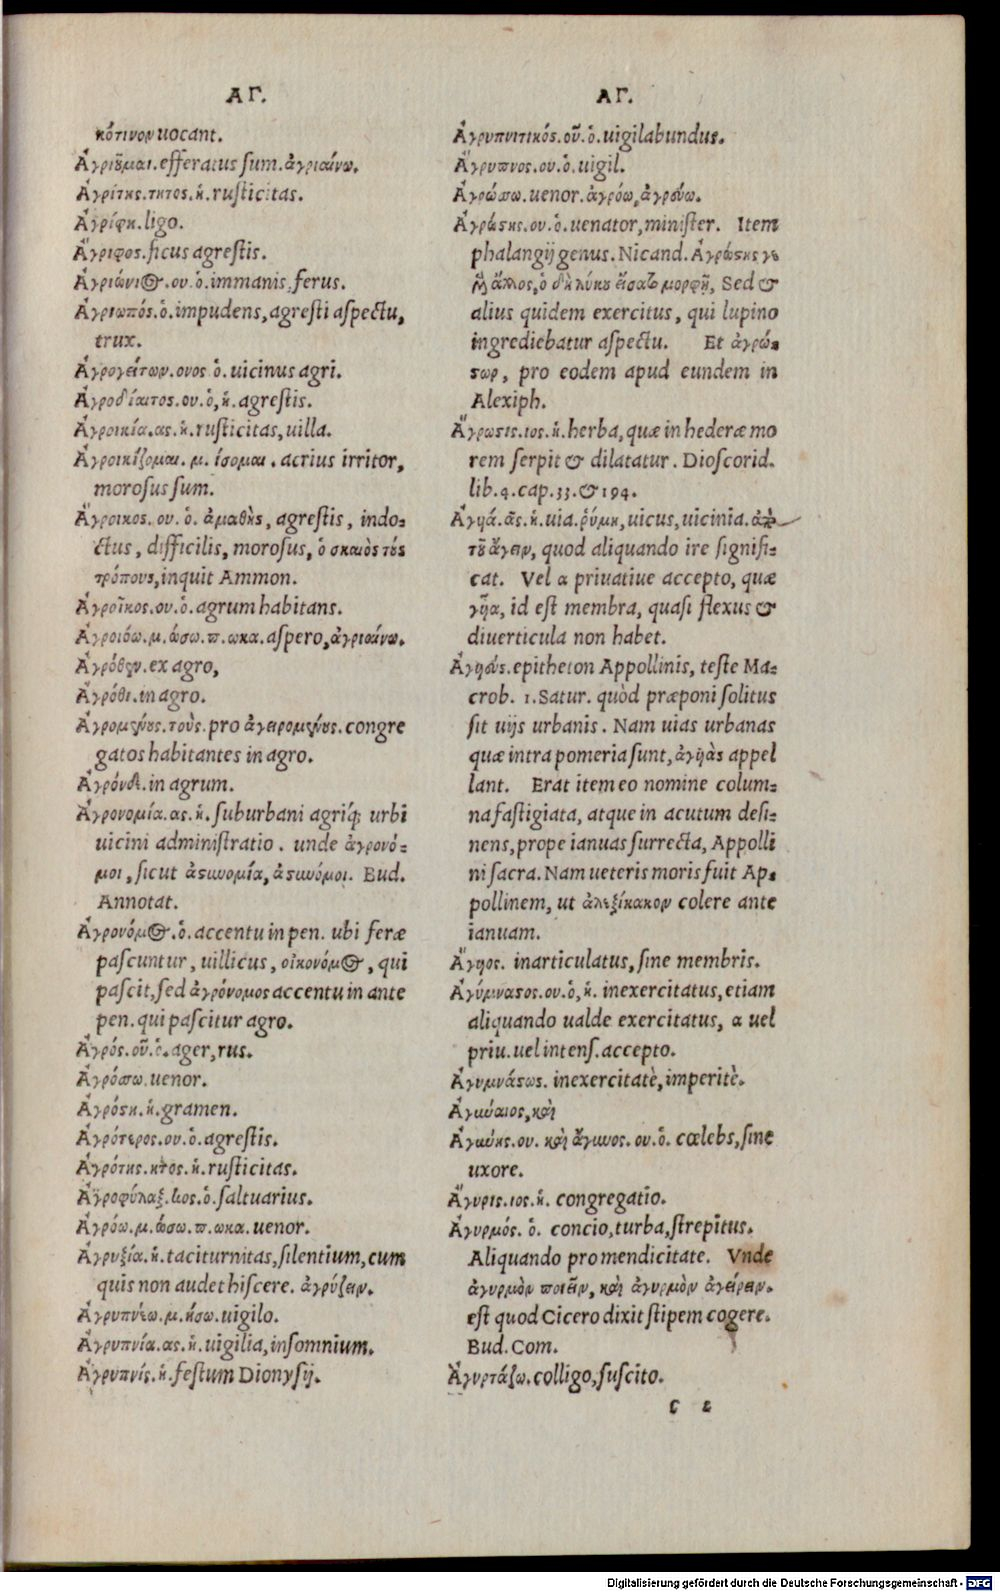 ΑΓ.
κότινον uocant.
Ἀγριοῦμαι. efferatus sum. ἀγριαίνω.
Ἀγρίτης. τητος. ἡ. rusticitas.
Ἀγρίφη. ligo.
Ἄγριφος. ficus agrestis.
Ἀγριώνιος. ου. ὁ. immanis, ferus.
Ἀγριωπός. ὁ. impudens, agresti aspectu,
trux.
Ἀγρογείτων. ονος ὁ. uicinus agri.
Ἀγροδίαιτος. ου. ὁ, ἡ. agrestis.
Ἀγροικία. ας. ἡ. rusticitas, uilla.
Ἀγροικίζομαι. μ. ίσομαι. acrius irritor,
morosus sum.
Ἄγροικος. ου. ὁ. ἀμαθὴς, agrestis, indo-
ctus, difficilis, morosus, ὁ σκαιὸς τοὺς
τρόπους, inquit Ammon.
Ἀγροῖκος. ου. ὁ. agrum habitans.
Ἀγροιόω. μ. ώσω. π. ωκα. aspero, ἀγριαίνω.
Ἀγρόθεν. ex agro,
Ἀγρόθι. in agro.
Ἀγρομένους. τοὺς. pro ἀγειρομένους. congre
gatos habitantes in agro.
Ἀγρόνδε. in agrum.
Ἀγρονομία. ας. ἡ. suburbani agriq; urbi
uicini administratio. unde ἀγρονό-
μοι, sicut ἀστυνομία, ἀστυνόμοι. Bud.
Annotat.
Ἀγρονόμος. ὁ. accentu in pen. ubi feræ
pascuntur, uillicus, οἰκονόμος, qui
pascit, sed ἀγρόνομος accentu in ante
pen. qui pascitur agro.
Ἀγρός. οῦ. ὁ. ager, rus.
Ἀγρόσσω. uenor.
Ἀγρόστη. ἡ. gramen.
Ἀγρότερος. ου. ὁ. agrestis.
Ἀγρότης. ητος. ἡ. rusticitas.
Ἀγροφύλαξ. κος. ὁ. saltuarius.
Ἀγρόω. μ. ώσω. π. ωκα. uenor.
Ἀγρυξία. ἡ. taciturnitas, silentium, cum
quis non audet hiscere. ἀγρύζειν.
Ἀγρυπνέω. μ. ήσω. uigilo.
Ἀγρυπνία. ας. ἡ. uigilia, insomnium.
Ἀγρυπνίς. ἡ. festum Dionysij.
ΑΓ.
Ἀγρυπνιτικός. οῦ. ὁ. uigilabundus.
Ἄγρυπνος. ου. ὁ. uigil.
Ἀγρώσσω. uenor. ἀγρόω, ἀγρεύω.
Ἀγρώστης. ου. ὁ. uenator, minister. Item
phalangij genus. Nicand. Ἀγρώστης γε
μὲν ἄλλος, ὁ δὴ λύκου εἴσατο μορφῇ, Sed &
alius quidem exercitus, qui lupino
ingrediebatur aspectu. Et ἀγρώ-
στωρ, pro eodem apud eundem in
Alexiph.
Ἄγρωστις. ιος. ἡ. herba, quæ in hederæ mo
rem serpit & dilatatur. Dioscorid.
lib. 4. cap. 33. & 194.
Ἀγυιά. ᾶς. ἡ. uia. ῥύμη, uicus, uicinia. ἀπὸ
τοῦ ἄγειν, quod aliquando ire signifi-
cat. Vel α priuatiue accepto, quæ
γυῖα, id est membra, quasi flexus &
diuerticula non habet.
Ἀγυιεύς. epitheton Appollinis, teste Ma-
crob. 1. Satur. quòd præponi solitus
sit uijs urbanis. Nam uias urbanas
quæ intra pomeria sunt, ἀγυιὰς appel
lant. Erat item eo nomine colum-
na fastigiata, atque in acutum desi-
nens, prope ianuas surrecta, Appolli
ni sacra. Nam ueteris moris fuit Ap-
pollinem, ut ἀλεξίκακον colere ante
ianuam.
Ἄγυιος. inarticulatus, sine membris.
Ἀγύμναστος. ου. ὁ, ἡ. inexercitatus, etiam
aliquando ualde exercitatus, α uel
priu. uel intens. accepto.
Ἀγυμνάστως. inexercitatè, imperitè.
Ἀγύναιος, καὶ
Ἀγύνης. ου. καὶ ἄγυνος. ου. ὁ. cælebs, sine
uxore.
Ἄγυρις. ιος. ἡ. congregatio.
Ἀγυρμός. ὁ. concio, turba, strepitus.
Aliquando pro mendicitate. Vnde
ἀγυρμὸν ποιεῖν, καὶ ἀγυρμὸν ἀγείρειν.
est quod Cicero dixit stipem cogere.
Bud. Com.
Ἀγυρτάζω. colligo, suscito.
c 2
Digitalisierung gefördert durch die Deutsche Forschungsgemeinschaft - DFG